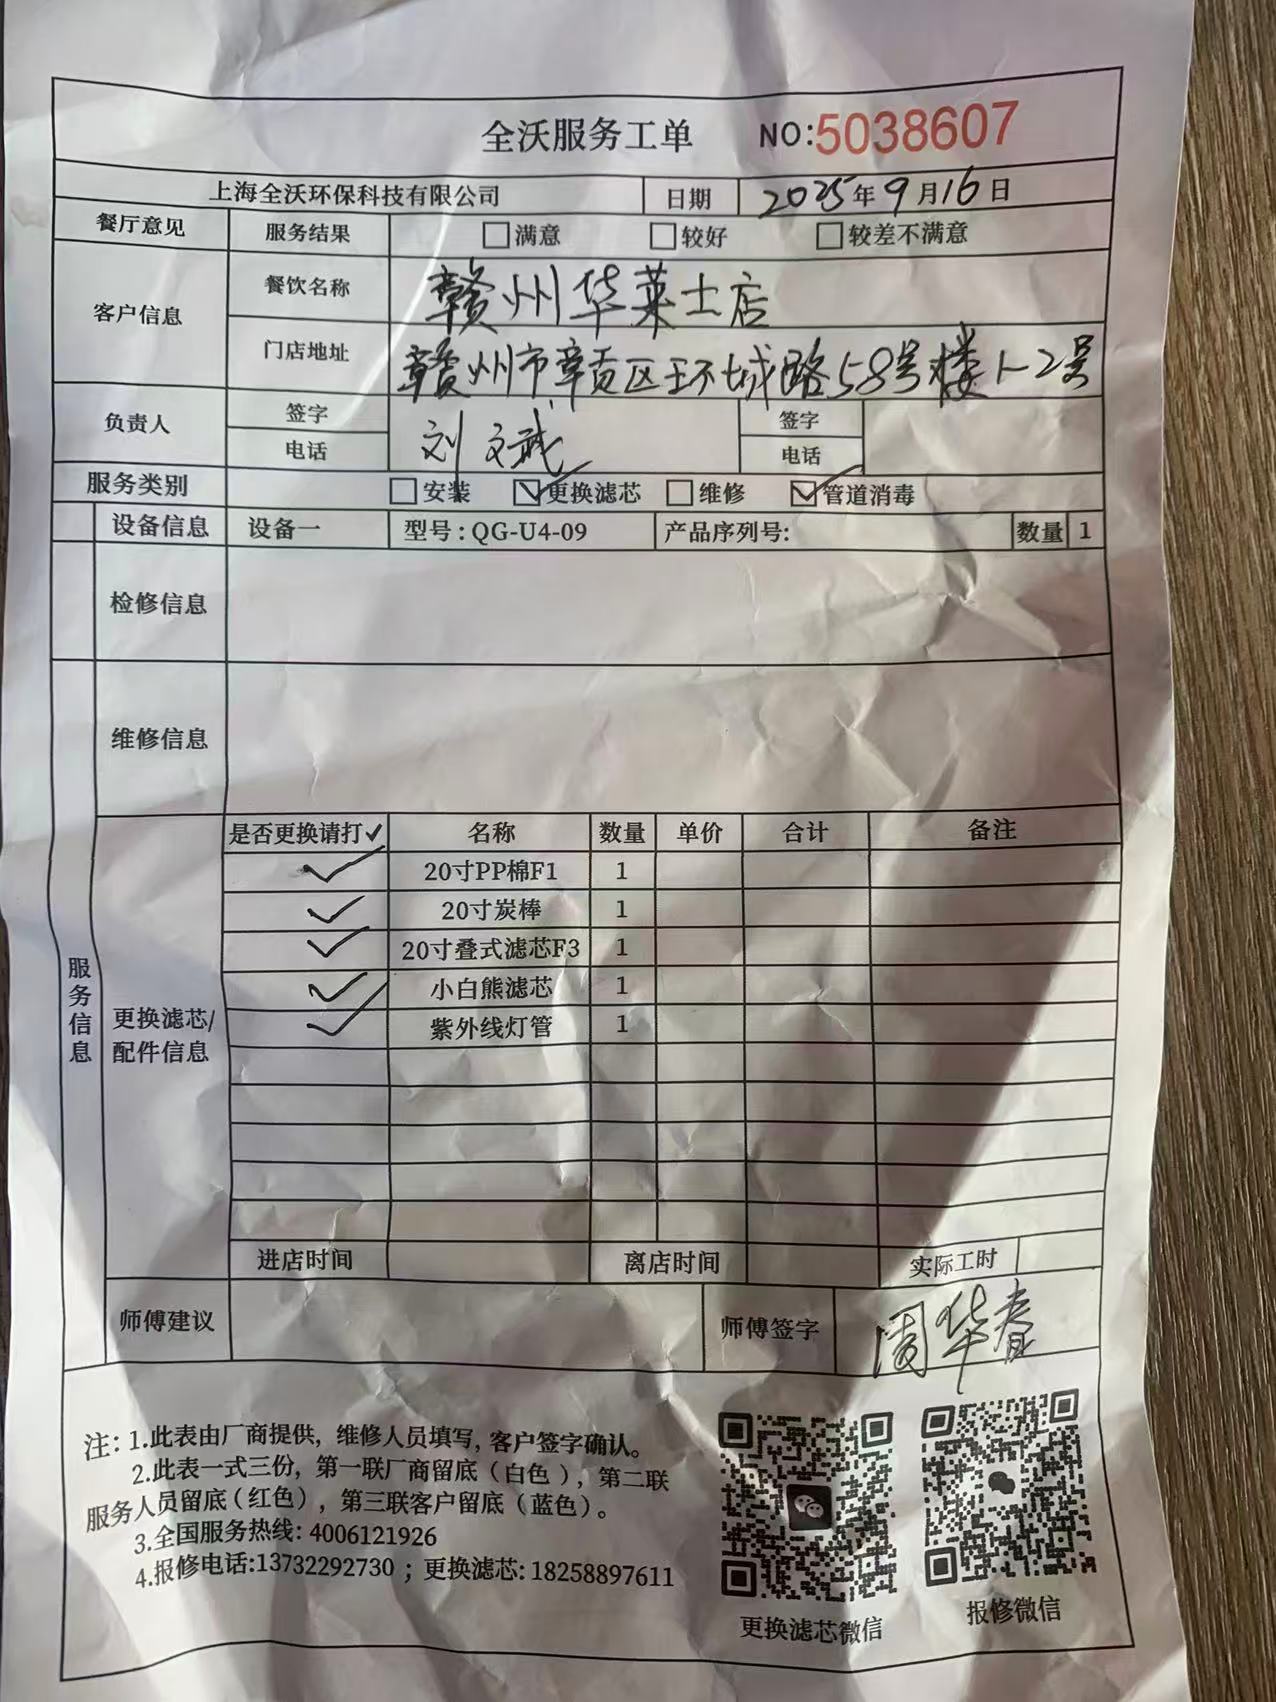 全沃服务工单 NO:5038607
上海全沃环保科技有限公司 日期 2025年9月16日
餐厅意见 服务结果 □满意 □较好 □较差不满意
客户信息 餐饮名称 赣州华莱士店
门店地址 赣州市章贡区环城路58号楼1-2号
负责人 签字 刘文武 签字
电话 电话
服务类别 □安装 ☑更换滤芯 □维修 ☑管道消毒
设备信息 设备一 型号:QG-U4-09 产品序列号: 数量 1
检修信息
维修信息
服务信息
更换滤芯/
配件信息
是否更换请打✓ 名称 数量 单价 合计 备注
✓ 20寸PP棉F1 1
✓ 20寸炭棒 1
✓ 20寸叠式滤芯F3 1
✓ 小白熊滤芯 1
✓ 紫外线灯管 1
进店时间 离店时间 实际工时
师傅建议 师傅签字 周华春
注: 1.此表由厂商提供, 维修人员填写, 客户签字确认。
2.此表一式三份, 第一联厂商留底(白色), 第二联
服务人员留底(红色), 第三联客户留底(蓝色)。
3.全国服务热线: 4006121926
4.报修电话:13732292730 ; 更换滤芯: 18258897611
更换滤芯微信 报修微信